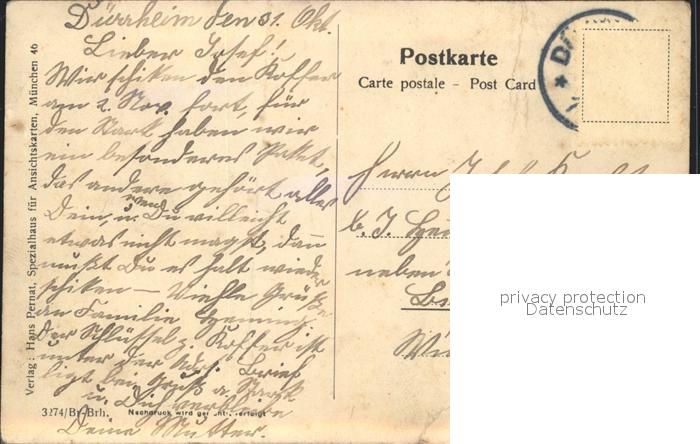 Dürrheim den 31. Okt.
Lieber Josef!
Wir schiken den Koffer
am 2. Nov. fort, für
den Stark haben wir
ein besonderes Paket,
das andere gehört alles
Dein, u. wen Du villeicht
etwas nicht magst, dan̄
mußt Du es halt wieder
schiken — Viehle Grüße
an Familie
Der Schlüssel z. Koffer ist
unter der Adr. Brief
ligt bei, Gruß a. Stark
u. Dich
Deine Mutter.
Verlag: Hans Pernat, Spezialhaus für Ansichtskarten, München 46
3274/Br-Brh. Nachdruck wird gerichtl. verfolgt
Postkarte
Carte postale - Post Card
Herrn
b. J.
neben
privacy protection
Datenschutz